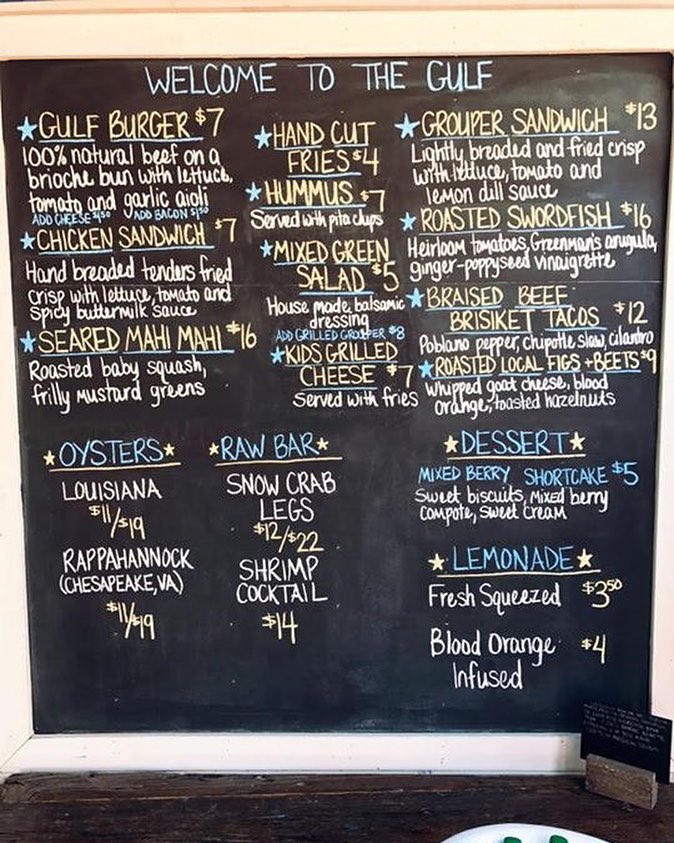 WELCOME TO THE GULF
GULF BURGER $7
100% natural beef on a
brioche bun with lettuce,
tomato and garlic aioli
ADD CHEESE $1.50 ADD BACON $1.50
CHICKEN SANDWICH $7
Hand breaded tenders fried
crisp with lettuce, tomato and
spicy buttermilk sauce
SEARED MAHI MAHI $16
Roasted baby squash,
frilly mustard greens
HAND CUT
FRIES $4
HUMMUS $7
Served with pita chips
MIXED GREEN
SALAD $5
House made, balsamic
dressing
ADD GRILLED GROUPER $8
KIDS GRILLED
CHEESE $7
Served with fries
GROUPER SANDWICH $13
Lightly breaded and fried crisp
with lettuce, tomato and
lemon dill sauce
ROASTED SWORDFISH $16
Heirloom tomatoes, Greenman's arugula,
ginger-poppyseed vinaigrette
BRAISED BEEF
BRISIKET TACOS $12
Poblano pepper, chipotle slaw, cilantro
ROASTED LOCAL FIGS + BEETS $9
Whipped goat cheese, blood
orange, toasted hazelnuts
OYSTERS
LOUISIANA
$11/$19
RAPPAHANNOCK
(CHESAPEAKE, VA)
$11/$19
RAW BAR
SNOW CRAB
LEGS
$12/$22
SHRIMP
COCKTAIL
$14
DESSERT
MIXED BERRY SHORTCAKE $5
Sweet biscuits, mixed berry
compote, sweet cream
LEMONADE
Fresh Squeezed $3.50
Blood Orange $4
Infused